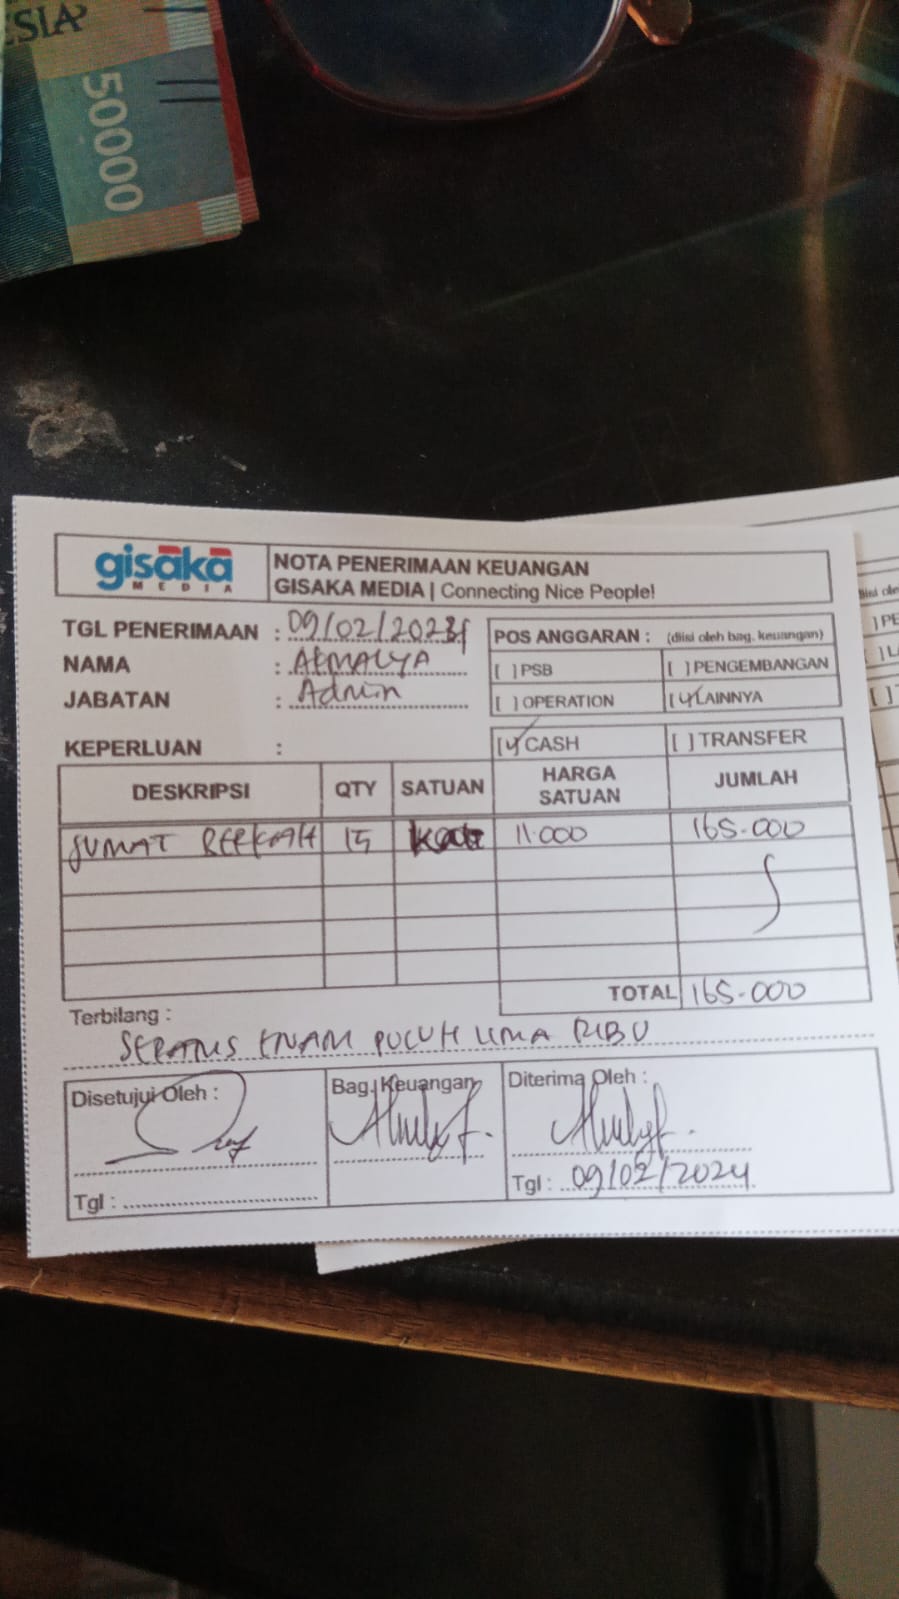 ESIA
50000
gisaka
MEDIA
NOTA PENERIMAAN KEUANGAN
GISAKA MEDIA | Connecting Nice People!
TGL PENERIMAAN : 09/02/2023
NAMA : AKMALYA
JABATAN : Admin
KEPERLUAN :
POS ANGGARAN : (diisi oleh bag. keuangan)
[ ] PSB [ ] PENGEMBANGAN
[ ] OPERATION [✓] LAINNYA
[✓] CASH [ ] TRANSFER
DESKRIPSI QTY SATUAN HARGA SATUAN JUMLAH
JUMAT BERKAH 15 11.000 165.000
TOTAL 165.000
Terbilang :
SERATUS ENAM PULUH LIMA RIBU
Disetujui Oleh : Bag. Keuangan Diterima Oleh :
Tgl : Tgl : 09/02/2024